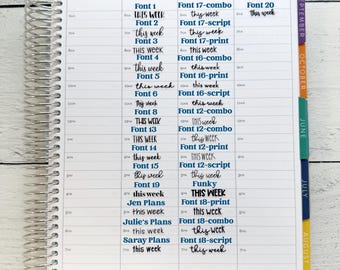 Font 1
THIS WEEK
Font 2
this week
Font 3
this week
Font 4
this week
Font 5
this week
Font 6
this week
Font 8
THIS WEEK
Font 13
this week
Font 14
this week
Font 15
this week
Font 19
this week
Jen Plans
this week
Julie's Plans
THIS WEEK
Saray Plans
this week
Font 17-combo
this week
Font 17-script
this week
Font 17-print
this week
Font 16-combo
this week
Font 16-print
this week
Font 16-script
this week
Font 12-combo
this week
Font 12-combo
this week
Font 12-print
this week
Font 12-script
this week
Funky
THIS WEEK
Font 18-print
this week
Font 18-combo
this week
Font 18-script
this week
Font 20
this week
SEPTEMBER
OCTOBER
JUNE
JULY
AUGUST